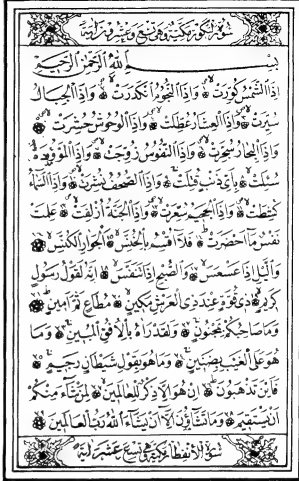 سورة التكوير مكية وهي تسع وعشرون آية
بِسْمِ اللهِ الرَّحْمٰنِ الرَّحِيمِ
اِذَا الشَّمْسُ كُوِّرَتْ وَاِذَا النُّجُومُ انْكَدَرَتْ وَاِذَا الْجِبَالُ
سُيِّرَتْ وَاِذَا الْعِشَارُ عُطِّلَتْ وَاِذَا الْوُحُوشُ حُشِرَتْ
وَاِذَا الْبِحَارُ سُجِّرَتْ وَاِذَا النُّفُوسُ زُوِّجَتْ وَاِذَا الْمَوْؤُدَةُ
سُئِلَتْ بِاَيِّ ذَنْبٍ قُتِلَتْ وَاِذَا الصُّحُفُ نُشِرَتْ وَاِذَا السَّمَاءُ
كُشِطَتْ وَاِذَا الْجَحِيمُ سُعِّرَتْ وَاِذَا الْجَنَّةُ اُزْلِفَتْ عَلِمَتْ
نَفْسٌ مَا اَحْضَرَتْ فَلَا اُقْسِمُ بِالْخُنَّسِ اَلْجَوَارِ الْكُنَّسِ
وَالَّيْلِ اِذَا عَسْعَسَ وَالصُّبْحِ اِذَا تَنَفَّسَ اِنَّهُ لَقَوْلُ رَسُولٍ
كَرِيمٍ ذِي قُوَّةٍ عِنْدَ ذِي الْعَرْشِ مَكِينٍ مُطَاعٍ ثَمَّ اَمِينٍ
وَمَا صَاحِبُكُمْ بِمَجْنُونٍ وَلَقَدْ رَاٰهُ بِالْاُفُقِ الْمُبِينِ وَمَا
هُوَ عَلَى الْغَيْبِ بِضَنِينٍ وَمَا هُوَ بِقَوْلِ شَيْطَانٍ رَجِيمٍ
فَاَيْنَ تَذْهَبُونَ اِنْ هُوَ اِلَّا ذِكْرٌ لِلْعَالَمِينَ لِمَنْ شَاءَ مِنْكُمْ
اَنْ يَسْتَقِيمَ وَمَا تَشَاؤُنَ اِلَّا اَنْ يَشَاءَ اللهُ رَبُّ الْعَالَمِينَ
سورة الانفطار مكية وهي تسع عشر آية